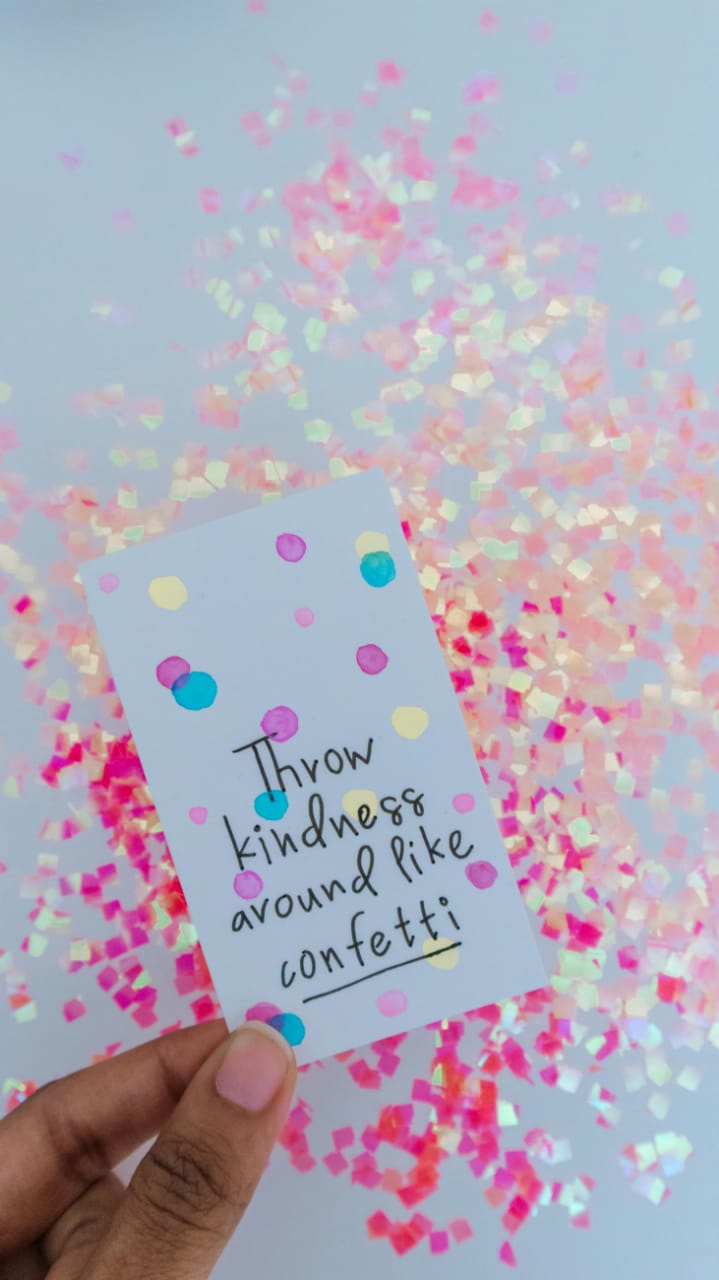 Throw
kindness
around like
confetti